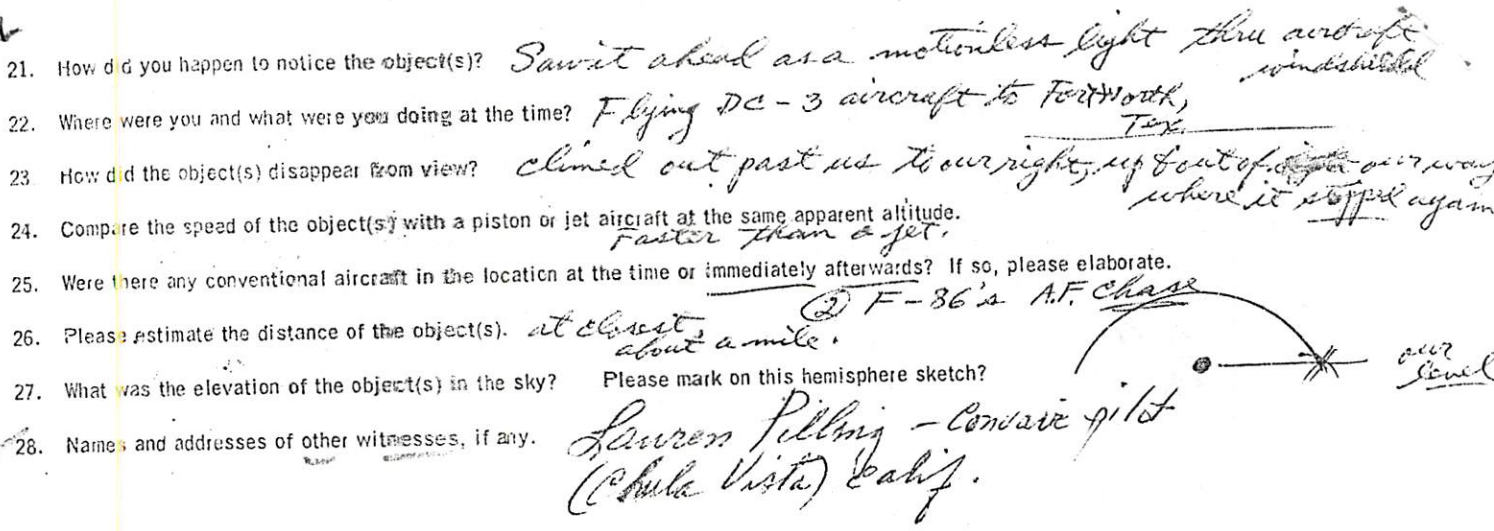 21. How did you happen to notice the object(s)? Saw it ahead as a motionless light thru aircraft
windshield
22. Where were you and what were you doing at the time? Flying DC-3 aircraft to Fort Worth,
Tex.
23 How did the object(s) disappear from view? climed out past us to our right, up & out of our way
where it stopped again
24. Compare the speed of the object(s) with a piston or jet aircraft at the same apparent altitude.
Faster than a jet.
25. Were there any conventional aircraft in the location at the time or immediately afterwards? If so, please elaborate.
② F-86's A.F. Chase
26. Please estimate the distance of the object(s). at closest,
about a mile.
27. What was the elevation of the object(s) in the sky? Please mark on this hemisphere sketch?
our
level
28. Names and addresses of other witnesses, if any. Lauren Pilling - Convair pilot
(Chula Vista) Calif.